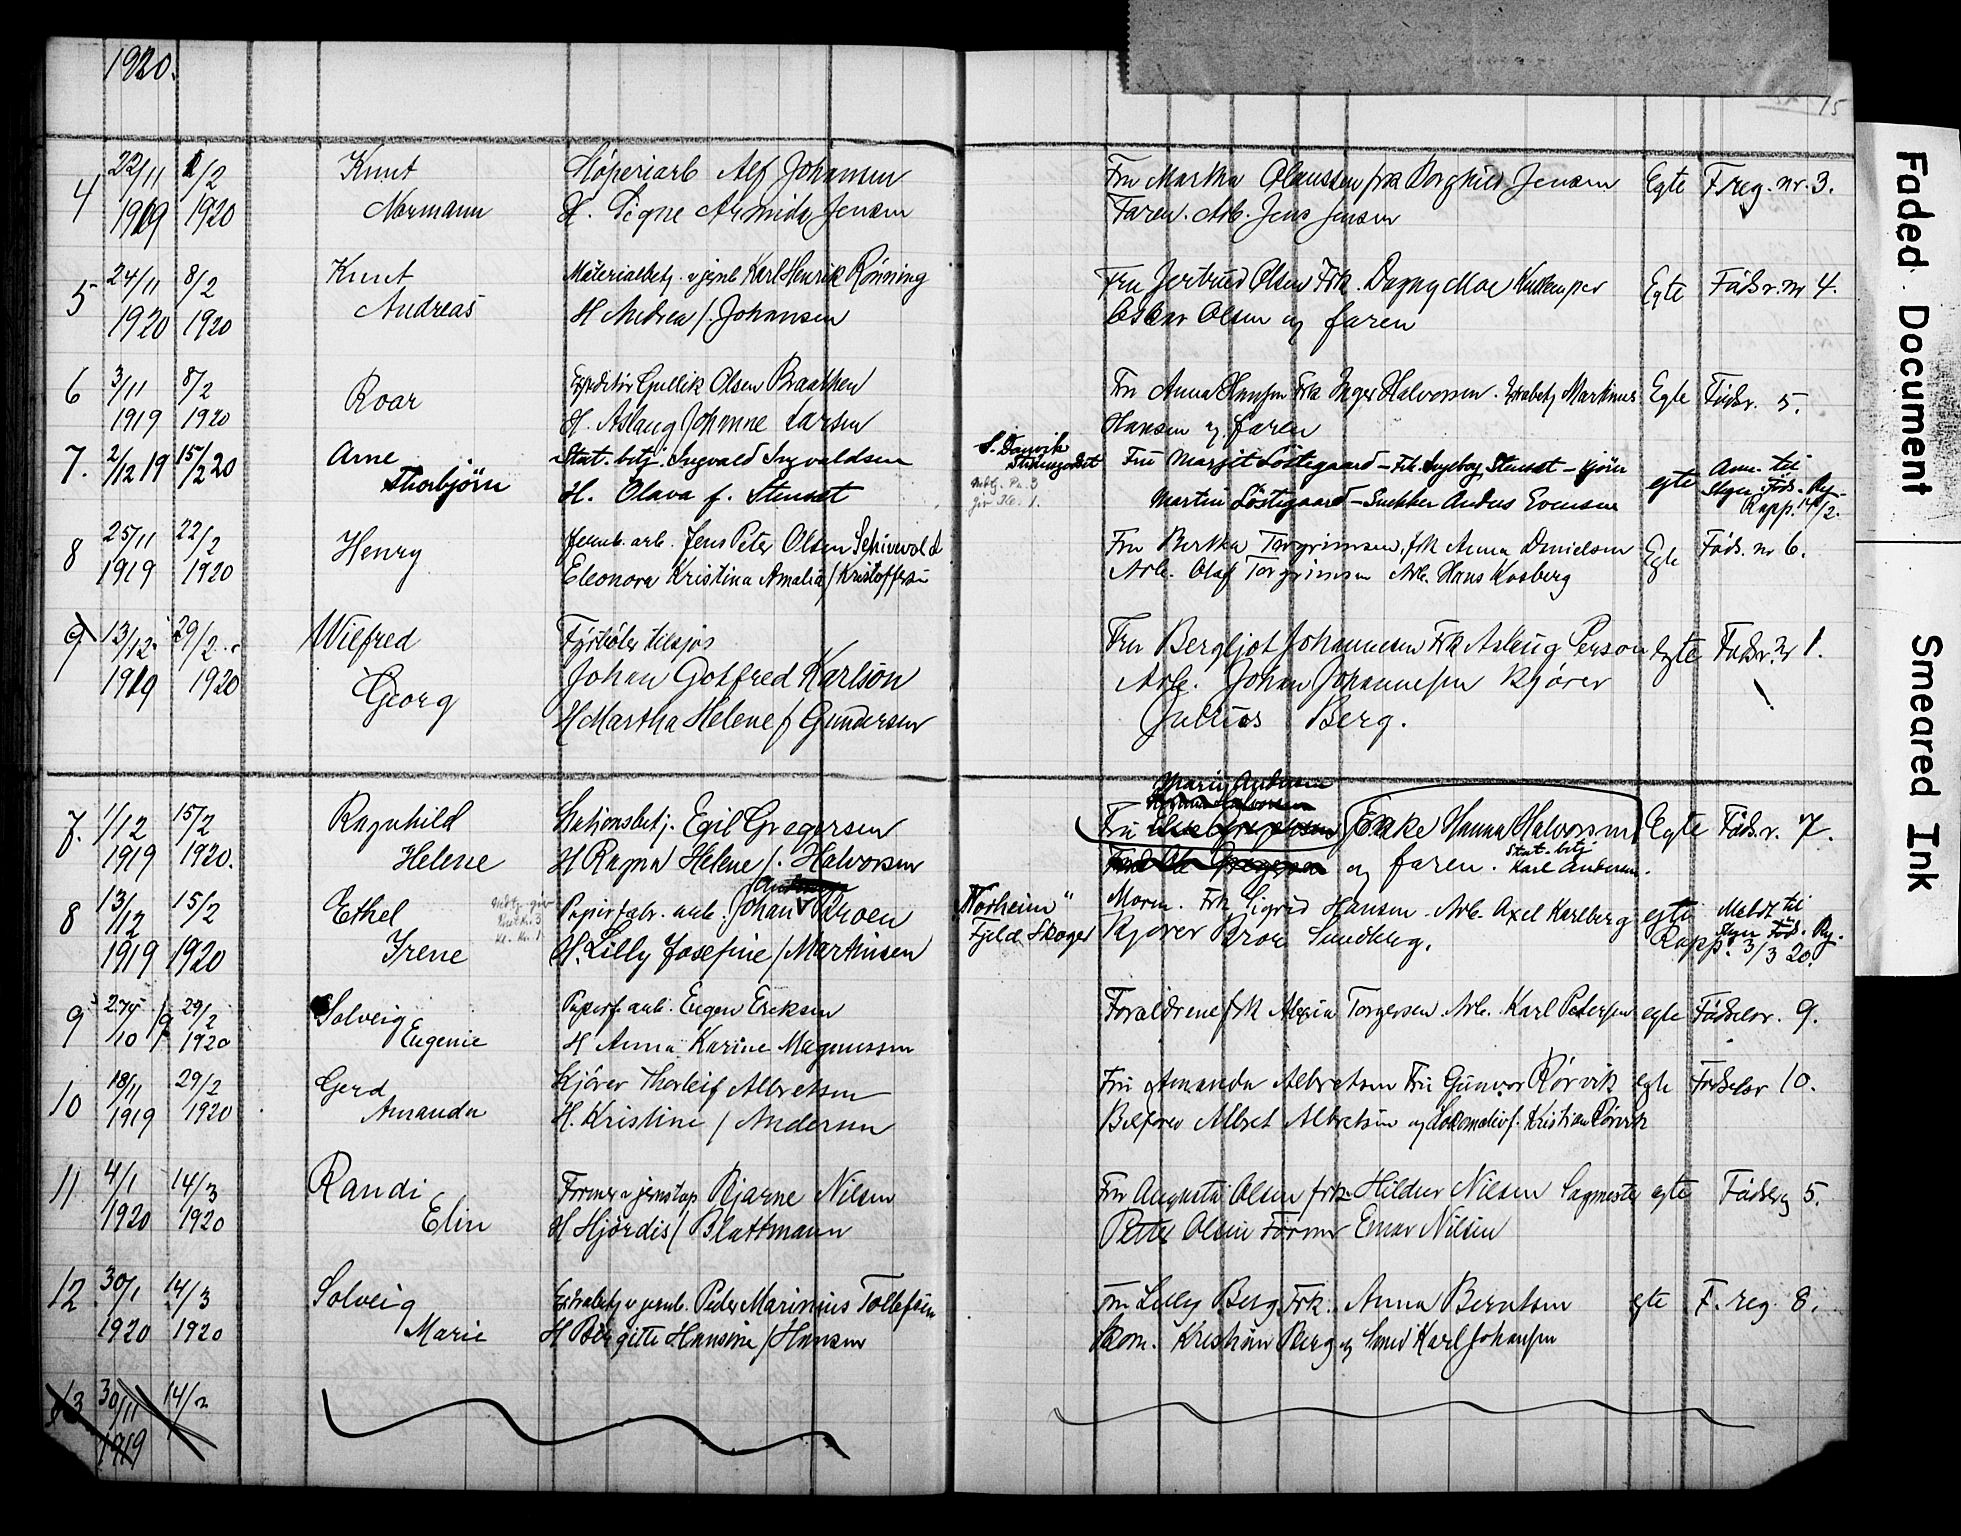 1920.
15
4 22/11 1/2 Knut Støperiarb Alf Johansen Fru Martha Olaussen frk Borghild Jensen Egte F reg. nr. 3.
1919 1920 Normann H. Signe Armida Jensen Faren. Arb. Jens Jensen
5 24/11 8/2 Knut Materialbetj. v jernb. Karl Henrik Rønning Fru Jertrud Olsen Frk. Dagny Moe Egte Fødsr. nr 4.
1920 1920 Andreas H Andrea /. Johansen Oskar Olsen og faren
6 3/11 8/2 Roar Expeditør Gullik Olsen Braathen Fru Anna Hansen Frk Inger Halvorsen. Martinus Egte Fødsr. 5.
1919 1920 H. Aslaug Johanne Larsen Hansen og faren
7. 2/12 19 15/2 20 Arne Stat. betj. Ingvald Ingvaldsen S. Danvik Fru Margit Löstegaard - Frk. Ingeborg Stenset - Kjörer egte Anm. til
Thorbjörn H. Olava f. Stenset Martin Löstegaard - Snekker Anders Evensen Föds. Reg.
Rapp. 14/2.
8 25/11 22/2 Henry Jernb. arb. Jens Peter Olsen Schivevold Fru Bertha Torgrimsen, frk Anna Danielsen Egte Föds. nr 6.
1919 1920 Eleonora Kristina Amalia / Kristoffersen Arb. Olaf Torgrimsen Arb. Hans Kosberg
9 13/12. 29/2 Wilfred Fyrbøter tilsjøs Fru Bergljot Johannesen Frk Aslaug Person Egte Fødsr. nr 1.
1919 1920 Georg Johan Gotfred Karlson Arb. Johan Johannesen Kjører
H Martha Helene f Gundersen Julius Berg.
Marie Andersen
7. 1/12 15/2 Ragnhild Stationsbetj. Egil Gregersen Fru Frøke Hanna Halvorsen Egte Føds.r. 7.
1919 1920. Helene H Ragna Helene /. Halvorsen og faren. Stat. betj Karl Andersen.
8 13/12 15/2 Ethel Papirfabr. arb. Johan Rhoen "Norheim" Morm. Frk Sigrid Hansen. Arb. Axel Karlberg egte Meldt til
1919 1920 Irene H. Lilly Josefine / Martinsen Fjeld Skoger Kjører Sundberg. Föds. Reg.
Rapp. 3/3 20.
9 29/2 Solveig Papirf. arb. Eugen Eriksen Forældrene frk Torgersen Arb. Karl Petersen egte Fødselsr. 9.
1920 Eugenie H Anna Karine Magnussen
10 18/11 29/2 Gerd Kjører Thorleif Albretsen Fru Amanda Albretsen Fru Gunvor Rørvik egte Fødselsr 10.
1919 1920 Amanda H. Kristine / Andersen Albret Albretsen og Lokomotivf. Kristian Rørvik
11 4/1 14/3 Randi Former v jernstøp Bjarne Nilsen Fru Augusta Olsen frk. Hildur Nilsen Sagmester egte Fødselsreg 5.
1920 1920 Elin H Hjørdis / Blattmann Petter Olsen Former Einar Nilsen
12 30/1 14/3 Solveig Extrabetj v jernb. Peder Marinius Tollefsen Fru Lilly Berg Frk. Anna Berntsen egte F. reg. 8.
1920 1920 Marie H Birgitte Hansine / Hansen Skom. Kristian Berg og Smed Karl Johansen
13 30/11 14/2
1919
Faded Document
Smeared Ink